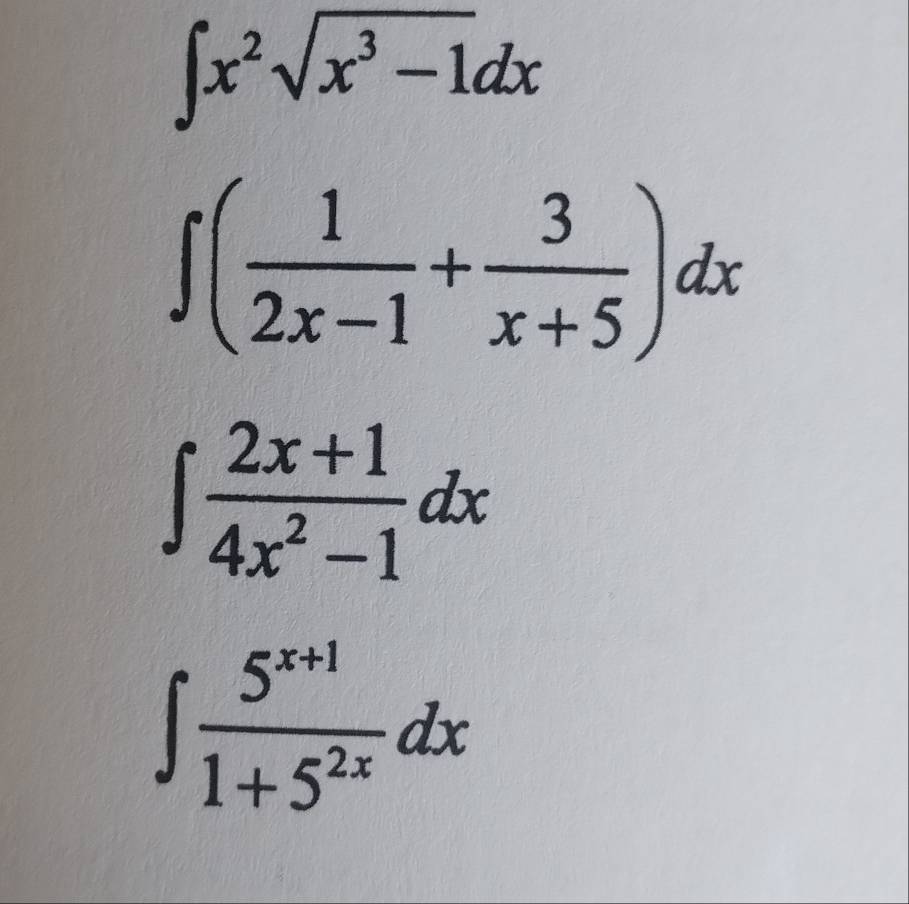 ∫x²√(x³ − 1)dx
∫(1/(2x − 1) + 3/(x + 5))dx
∫(2x + 1)/(4x² − 1) dx
∫5ˣ⁺¹/(1 + 5²ˣ) dx